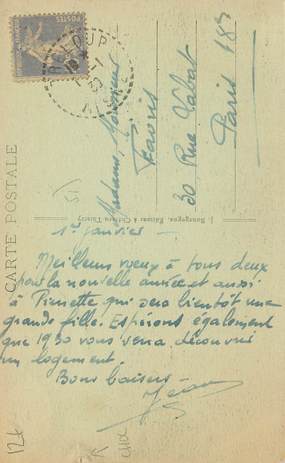 CARTE POSTALE
Madame, Monsieur
Favris
30 Rue Labat
Paris 18e
1er janvier
Meilleurs vœux à tous deux
pour la nouvelle année et aussi
à Pierrette qui sera bientôt une
grande fille. Espérons également
que 1930 vous verra découvrir
un logement.
Bons baisers
Jean